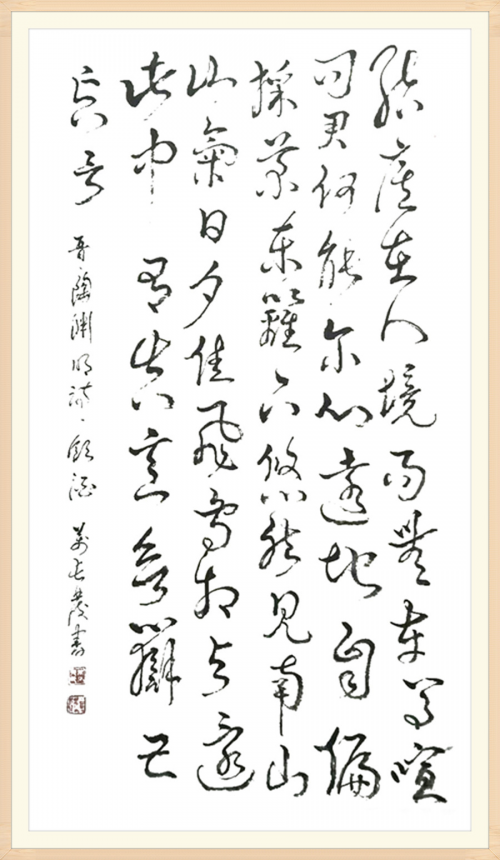 結廬在人境而無車馬喧
問君何能爾心遠地自偏
採菊東籬下悠然見南山
山氣日夕佳飛鳥相與還
此中有真意欲辨已
忘言 晋陶渊明詩、飲酒 書